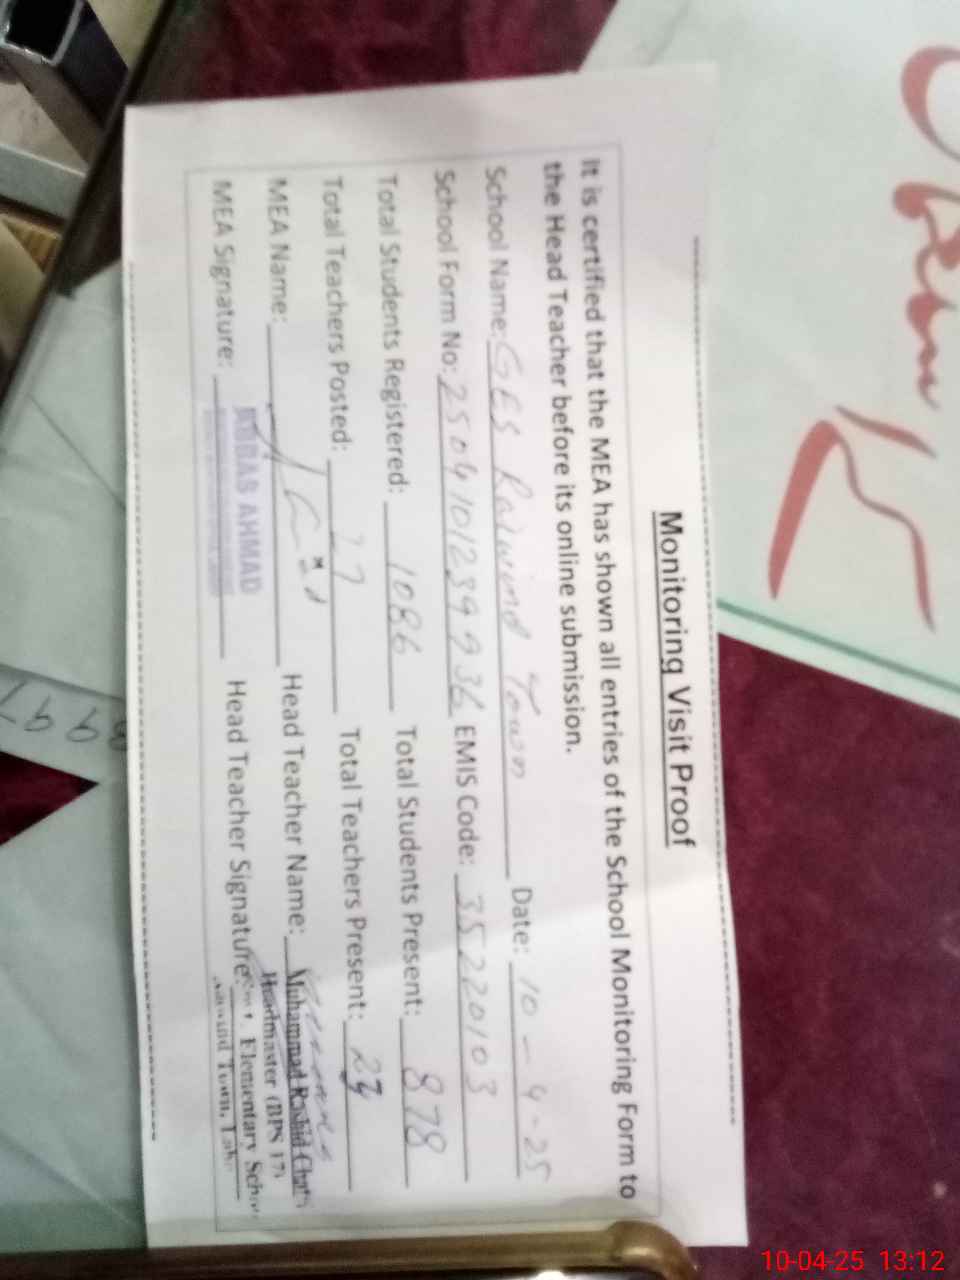 Monitoring Visit Proof
It is certified that the MEA has shown all entries of the School Monitoring Form to
the Head Teacher before its online submission.
School Name: GES Raiwind Town Date: 10-4-25
School Form No: 2504101239936 EMIS Code: 35220103
Total Students Registered: 1086 Total Students Present: 878
Total Teachers Posted: 27 Total Teachers Present:
MEA Name: Head Teacher Name: Muhammad Rashid
MEA Signature: ABBAS AHMAD Head Teacher Signature:
Headmaster (BPS 17)
Govt. Elementary School
Raiwind Town,
10-04-25 13:12